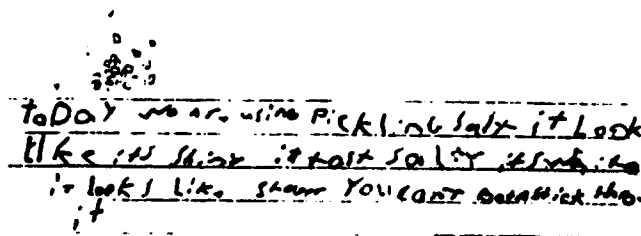 toDay we are using Pickling salt it Look
like its shiny it tast salty its white
it looks like snow You cant
it